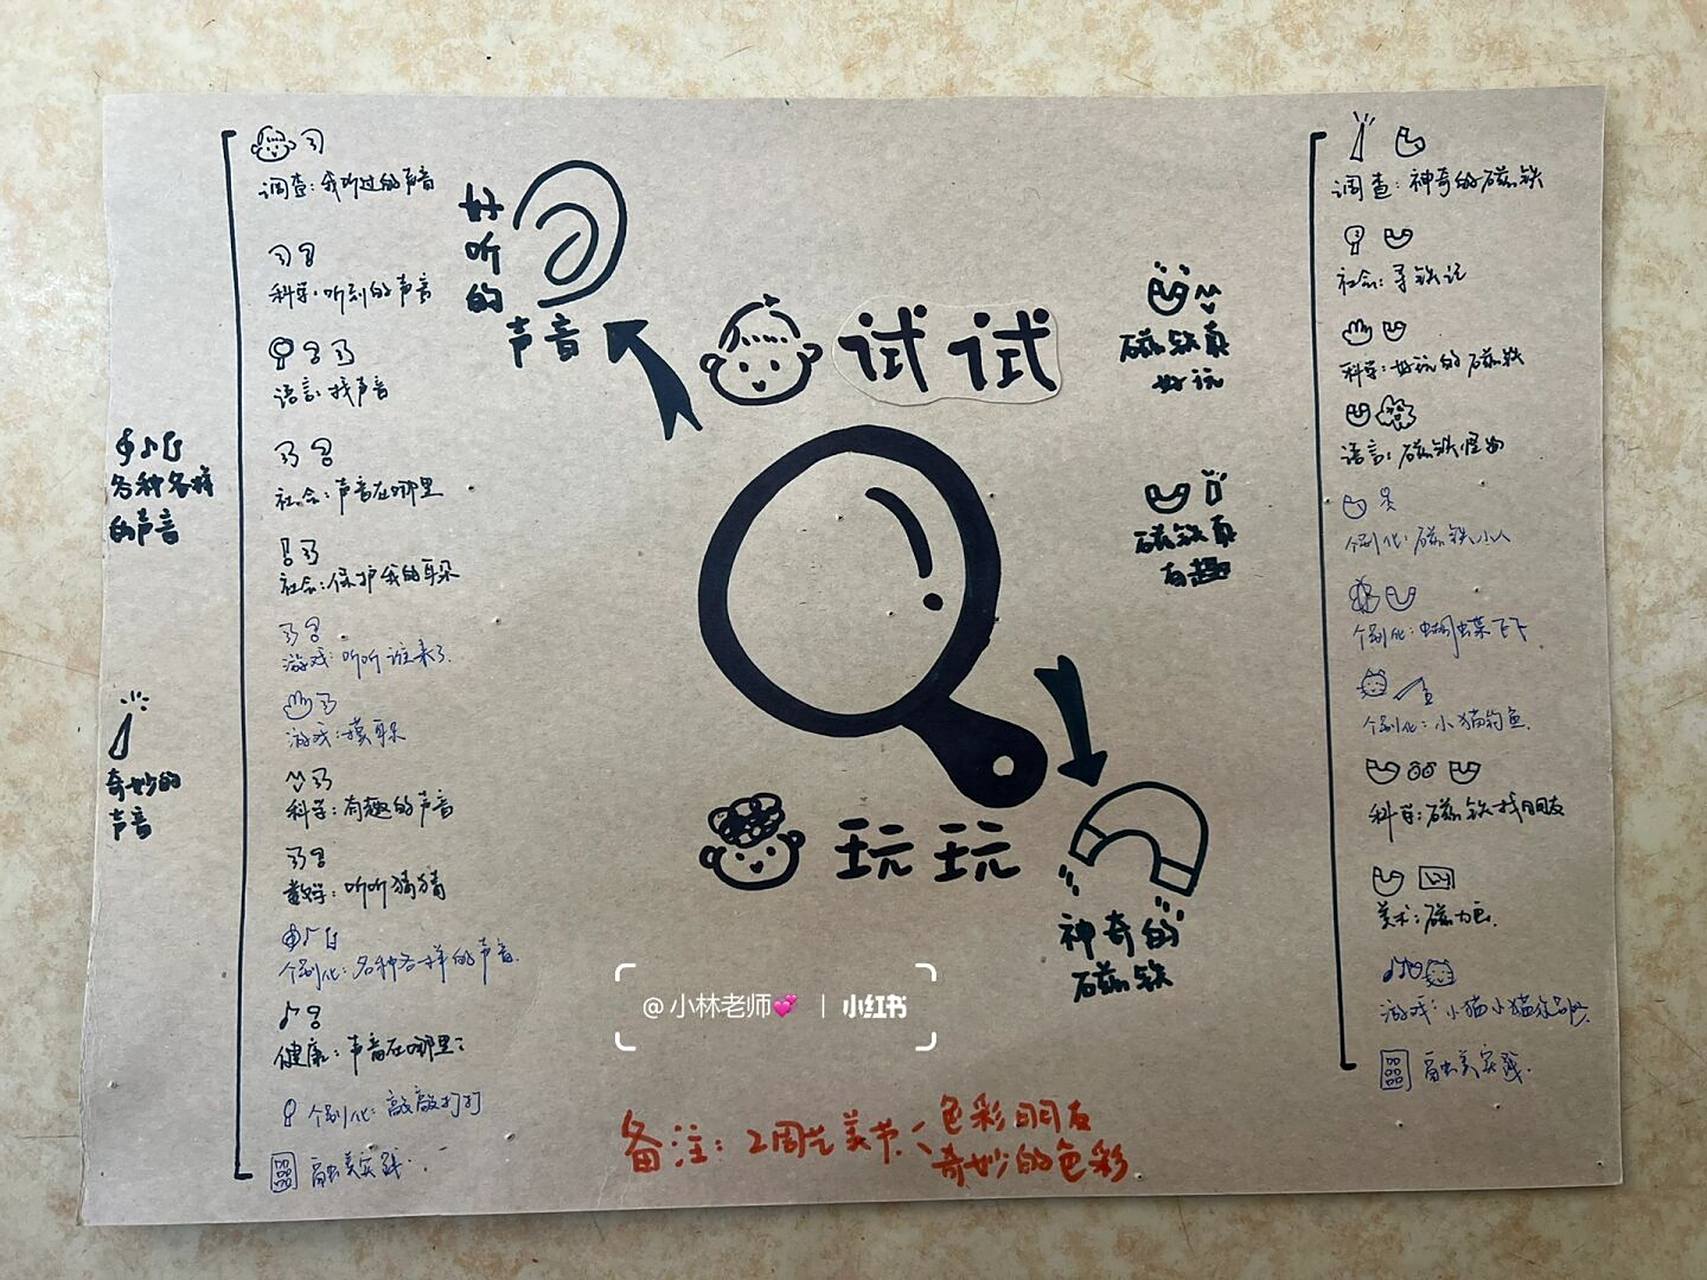 调查：我听过的声音
科学：听到的声音
语言：找声音
社会：声音在哪里
社会：保护我的耳朵
游戏：听听谁来了
游戏：摸耳朵
科学：有趣的声音
数学：听听猜猜
个别化：各种各样的声音
健康：声音在哪里？
个别化：敲敲打打
融美实践
各种各样
的声音
奇妙的
声音
好听的
声音
试试
玩玩
磁铁真
好玩
磁铁真
有趣
神奇的
磁铁
调查：神奇的磁铁
社会：寻铁记
科学：好玩的磁铁
语言：磁铁怪
个别化：磁铁小人
个别化：蝴蝶飞飞
个别化：小猫钓鱼
科学：磁铁找朋友
美术：磁力画
游戏：小猫小猫
融美实践
@小林老师💕 | 小红书
备注：2周艺美节
色彩朋友
奇妙的色彩